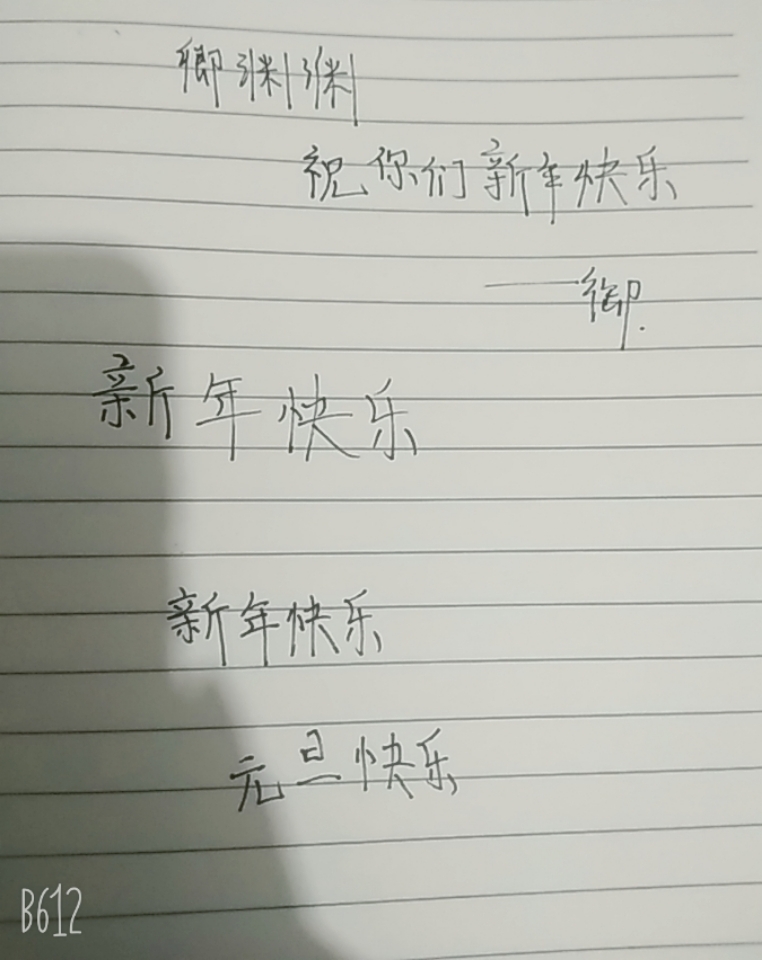 卿渊渊
祝你们新年快乐
——御.
新年快乐
新年快乐
元旦快乐
B612